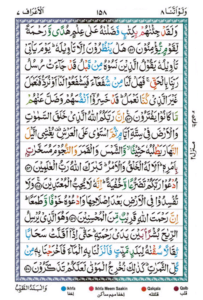 ولواننا ٨ ١٥٨ الاعراف ٧
وَلَقَدْ جِئْنٰهُمْ بِكِتٰبٍ فَصَّلْنٰهُ عَلٰى عِلْمٍ هُدًى وَّرَحْمَةً
لِّقَوْمٍ يُّؤْمِنُوْنَ هَلْ يَنْظُرُوْنَ اِلَّا تَاْوِيْلَهٗ يَوْمَ يَاْتِيْ
تَاْوِيْلُهٗ يَقُوْلُ الَّذِيْنَ نَسُوْهُ مِنْ قَبْلُ قَدْ جَآءَتْ رُسُلُ
رَبِّنَا بِالْحَقِّ فَهَلْ لَّنَا مِنْ شُفَعَآءَ فَيَشْفَعُوْا لَنَآ اَوْ نُرَدُّ
فَنَعْمَلَ غَيْرَ الَّذِيْ كُنَّا نَعْمَلُ قَدْ خَسِرُوْٓا اَنْفُسَهُمْ وَضَلَّ عَنْهُمْ
مَّا كَانُوْا يَفْتَرُوْنَ اِنَّ رَبَّكُمُ اللّٰهُ الَّذِيْ خَلَقَ السَّمٰوٰتِ
وَالْاَرْضَ فِيْ سِتَّةِ اَيَّامٍ ثُمَّ اسْتَوٰى عَلَى الْعَرْشِ يُغْشِي الَّيْلَ
النَّهَارَ يَطْلُبُهٗ حَثِيْثًا وَّالشَّمْسَ وَالْقَمَرَ وَالنُّجُوْمَ مُسَخَّرٰتٍ
بِاَمْرِهٖ اَلَا لَهُ الْخَلْقُ وَالْاَمْرُ تَبٰرَكَ اللّٰهُ رَبُّ الْعٰلَمِيْنَ
اُدْعُوْا رَبَّكُمْ تَضَرُّعًا وَّخُفْيَةً اِنَّهٗ لَا يُحِبُّ الْمُعْتَدِيْنَ
وَلَا تُفْسِدُوْا فِي الْاَرْضِ بَعْدَ اِصْلَاحِهَا وَادْعُوْهُ خَوْفًا وَّطَمَعًا
اِنَّ رَحْمَتَ اللّٰهِ قَرِيْبٌ مِّنَ الْمُحْسِنِيْنَ وَهُوَ الَّذِيْ يُرْسِلُ
الرِّيٰحَ بُشْرًا بَيْنَ يَدَيْ رَحْمَتِهٖ حَتّٰٓى اِذَآ اَقَلَّتْ سَحَابًا
ثِقَالًا سُقْنٰهُ لِبَلَدٍ مَّيِّتٍ فَاَنْزَلْنَا بِهِ الْمَآءَ فَاَخْرَجْنَا بِهٖ مِنْ
كُلِّ الثَّمَرٰتِ كَذٰلِكَ نُخْرِجُ الْمَوْتٰى لَعَلَّكُمْ تَذَكَّرُوْنَ
وَالْبَلَدُ الطَّيِّبُ